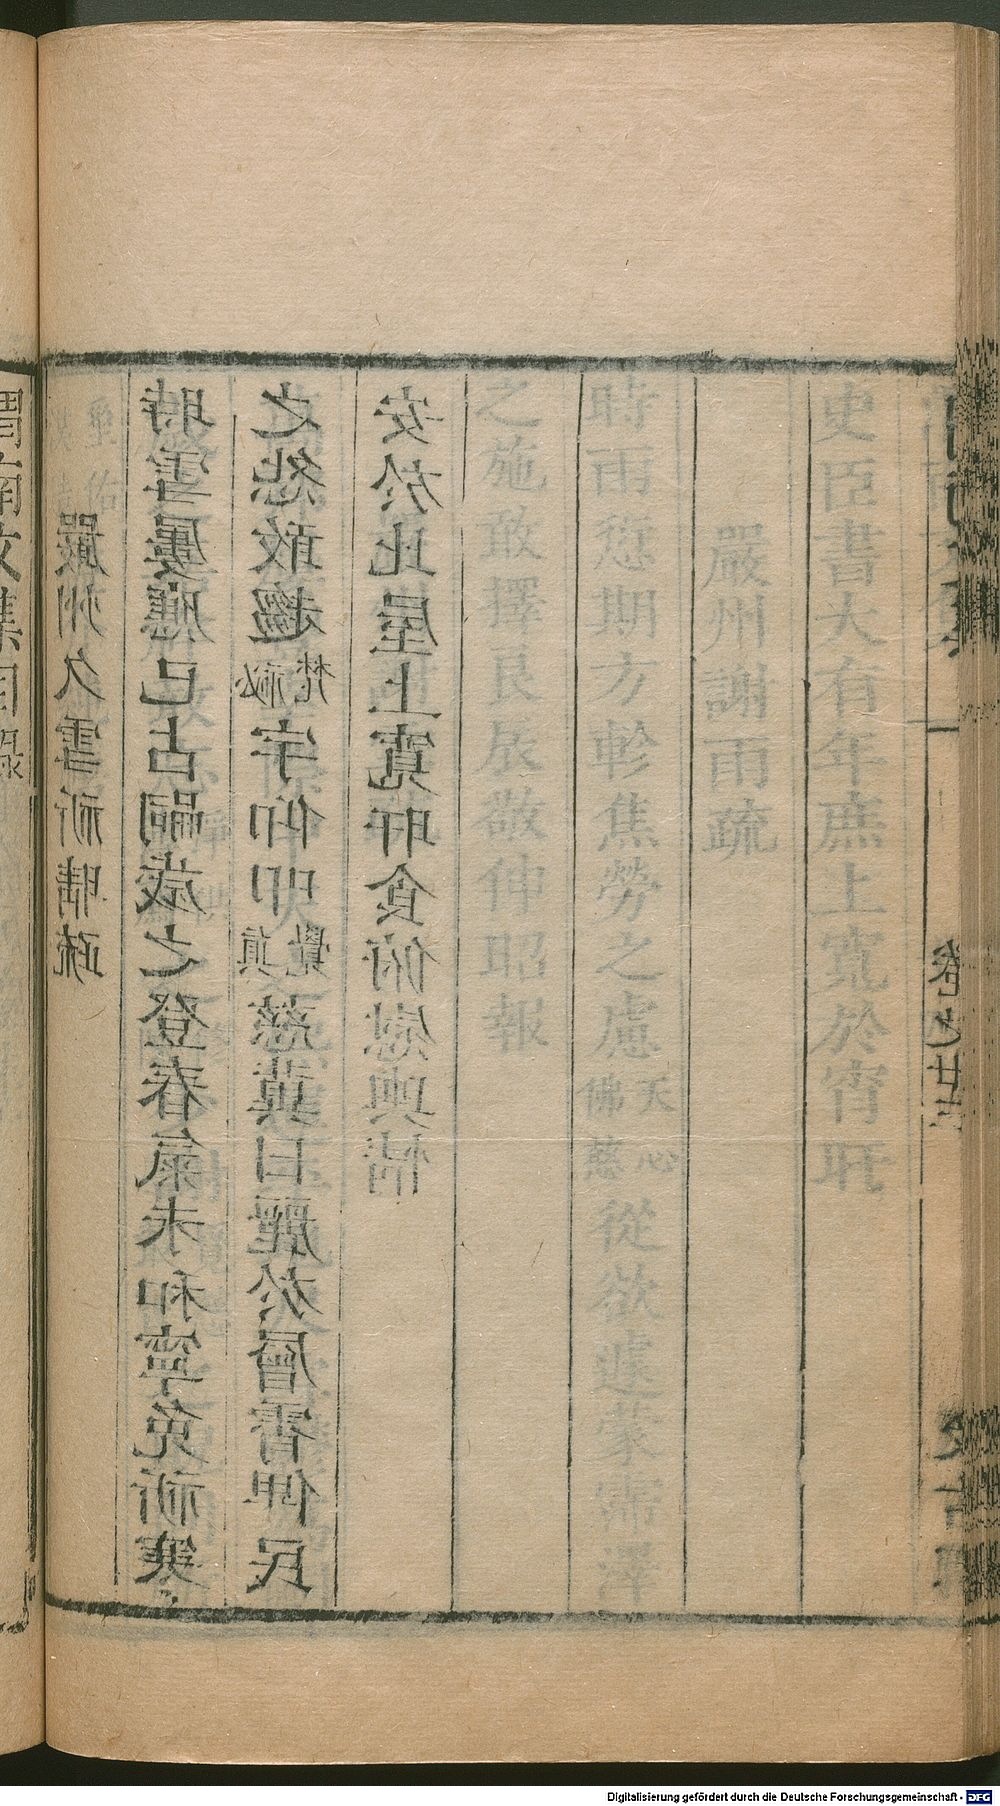 史臣書大有年庶上寬於宵旰
嚴州謝雨疏
時雨愆期方軫焦勞之慮天心佛慈從欲遽蒙霈澤
之施敢擇良辰敬伸昭報
嚴州久雪祈晴疏
時雪屢應已占嗣歲之登春氣未和寧免祈寒
之怨敢趨梵祕宇仰叩覺真慈冀日麗於層霄俾民
安於比屋上寬旰食俯慰輿情
卷之廿三
渭南文集目錄
Digitalisierung gefördert durch die Deutsche Forschungsgemeinschaft - DFG